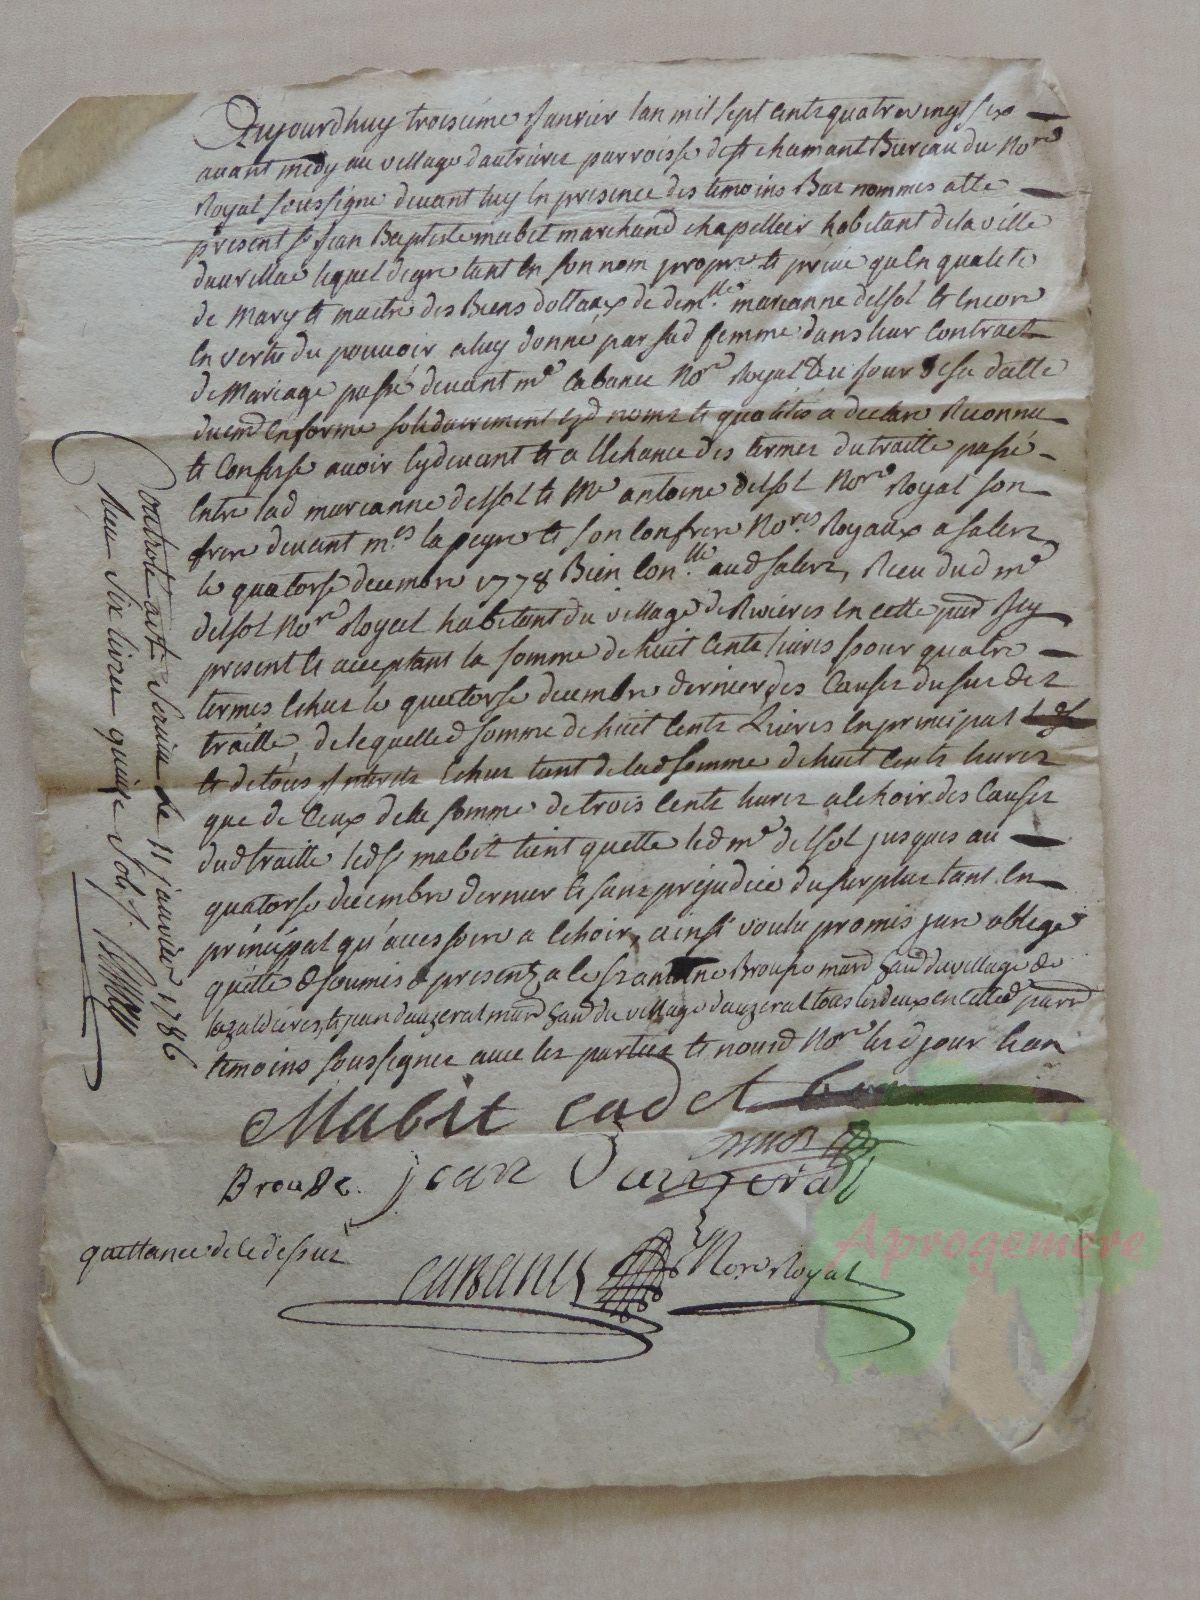 Aujourdhuy troisième Janvier lan mil sept cents quatre vingt six
avant midy au village dautrieres parroisse de st chamant Bureau du Nore
Royal soussigné devant luy en presence des temoins Bas nommés a été
présent sr jean Baptiste mabit marchand chapellier habitant de la ville
daurillac lequel de gre tant en son nom propre et privé qu'en qualité
de Mary et maitre des Biens dottaux de demlle marianne delsol et encore
en vertu du pouvoir a luy donné par sad femme dans leur contract
de Mariage passé devant me Cabanes Nore Royal au jour de sa datte
duemt en forme solidairement esd noms et qualités a declaré Reconnu
et Confessé avoir cy devant et a lechance des termes du traitté passé
entre lad marianne delsol et Me antoine delsol Nore Royal son
frere devant mes lapeyre et son Confrere Nores Royaux a salers
le quatorse decembre 1778 Bien Conllé aud salers, Reçu dud me
delsol Nore Royal habitant du village de Rivières en cette pard Icy
present et acceptant la somme de huit cents livres pour quatre
termes echus le quatorse decembre dernier des Causes du susdt
traitté, de lequelle d somme de huit cents Livres en principal
et de tous interets echus tant de lad somme de huit cents livres
que de Ceux de la somme de trois cents livres a echoir des Causes
dud traitté led sr mabit tient quitte led me delsol jusques au
quatorse decembre dernier et sans prejudice du surplus tant en
principal qu'accessoire a echoir, ainsi voulu promis juré obligé
quitté & soumis & presents a ce sr antoine Brousse mard du village de
lazaldieres, et jean dauzerat mard du village dauzerat tous les deux en cette d parr
temoins soussignés avec les parties et nous d Nore lesd jour & an
Mabit cadet
Brousse. jean Dauzerat
quittance de ce dessus
CABANES Nore Royal
Controlé a st Cernin le 11 janvier 1786
Reçu six livres quinze sols.
Aprogemere